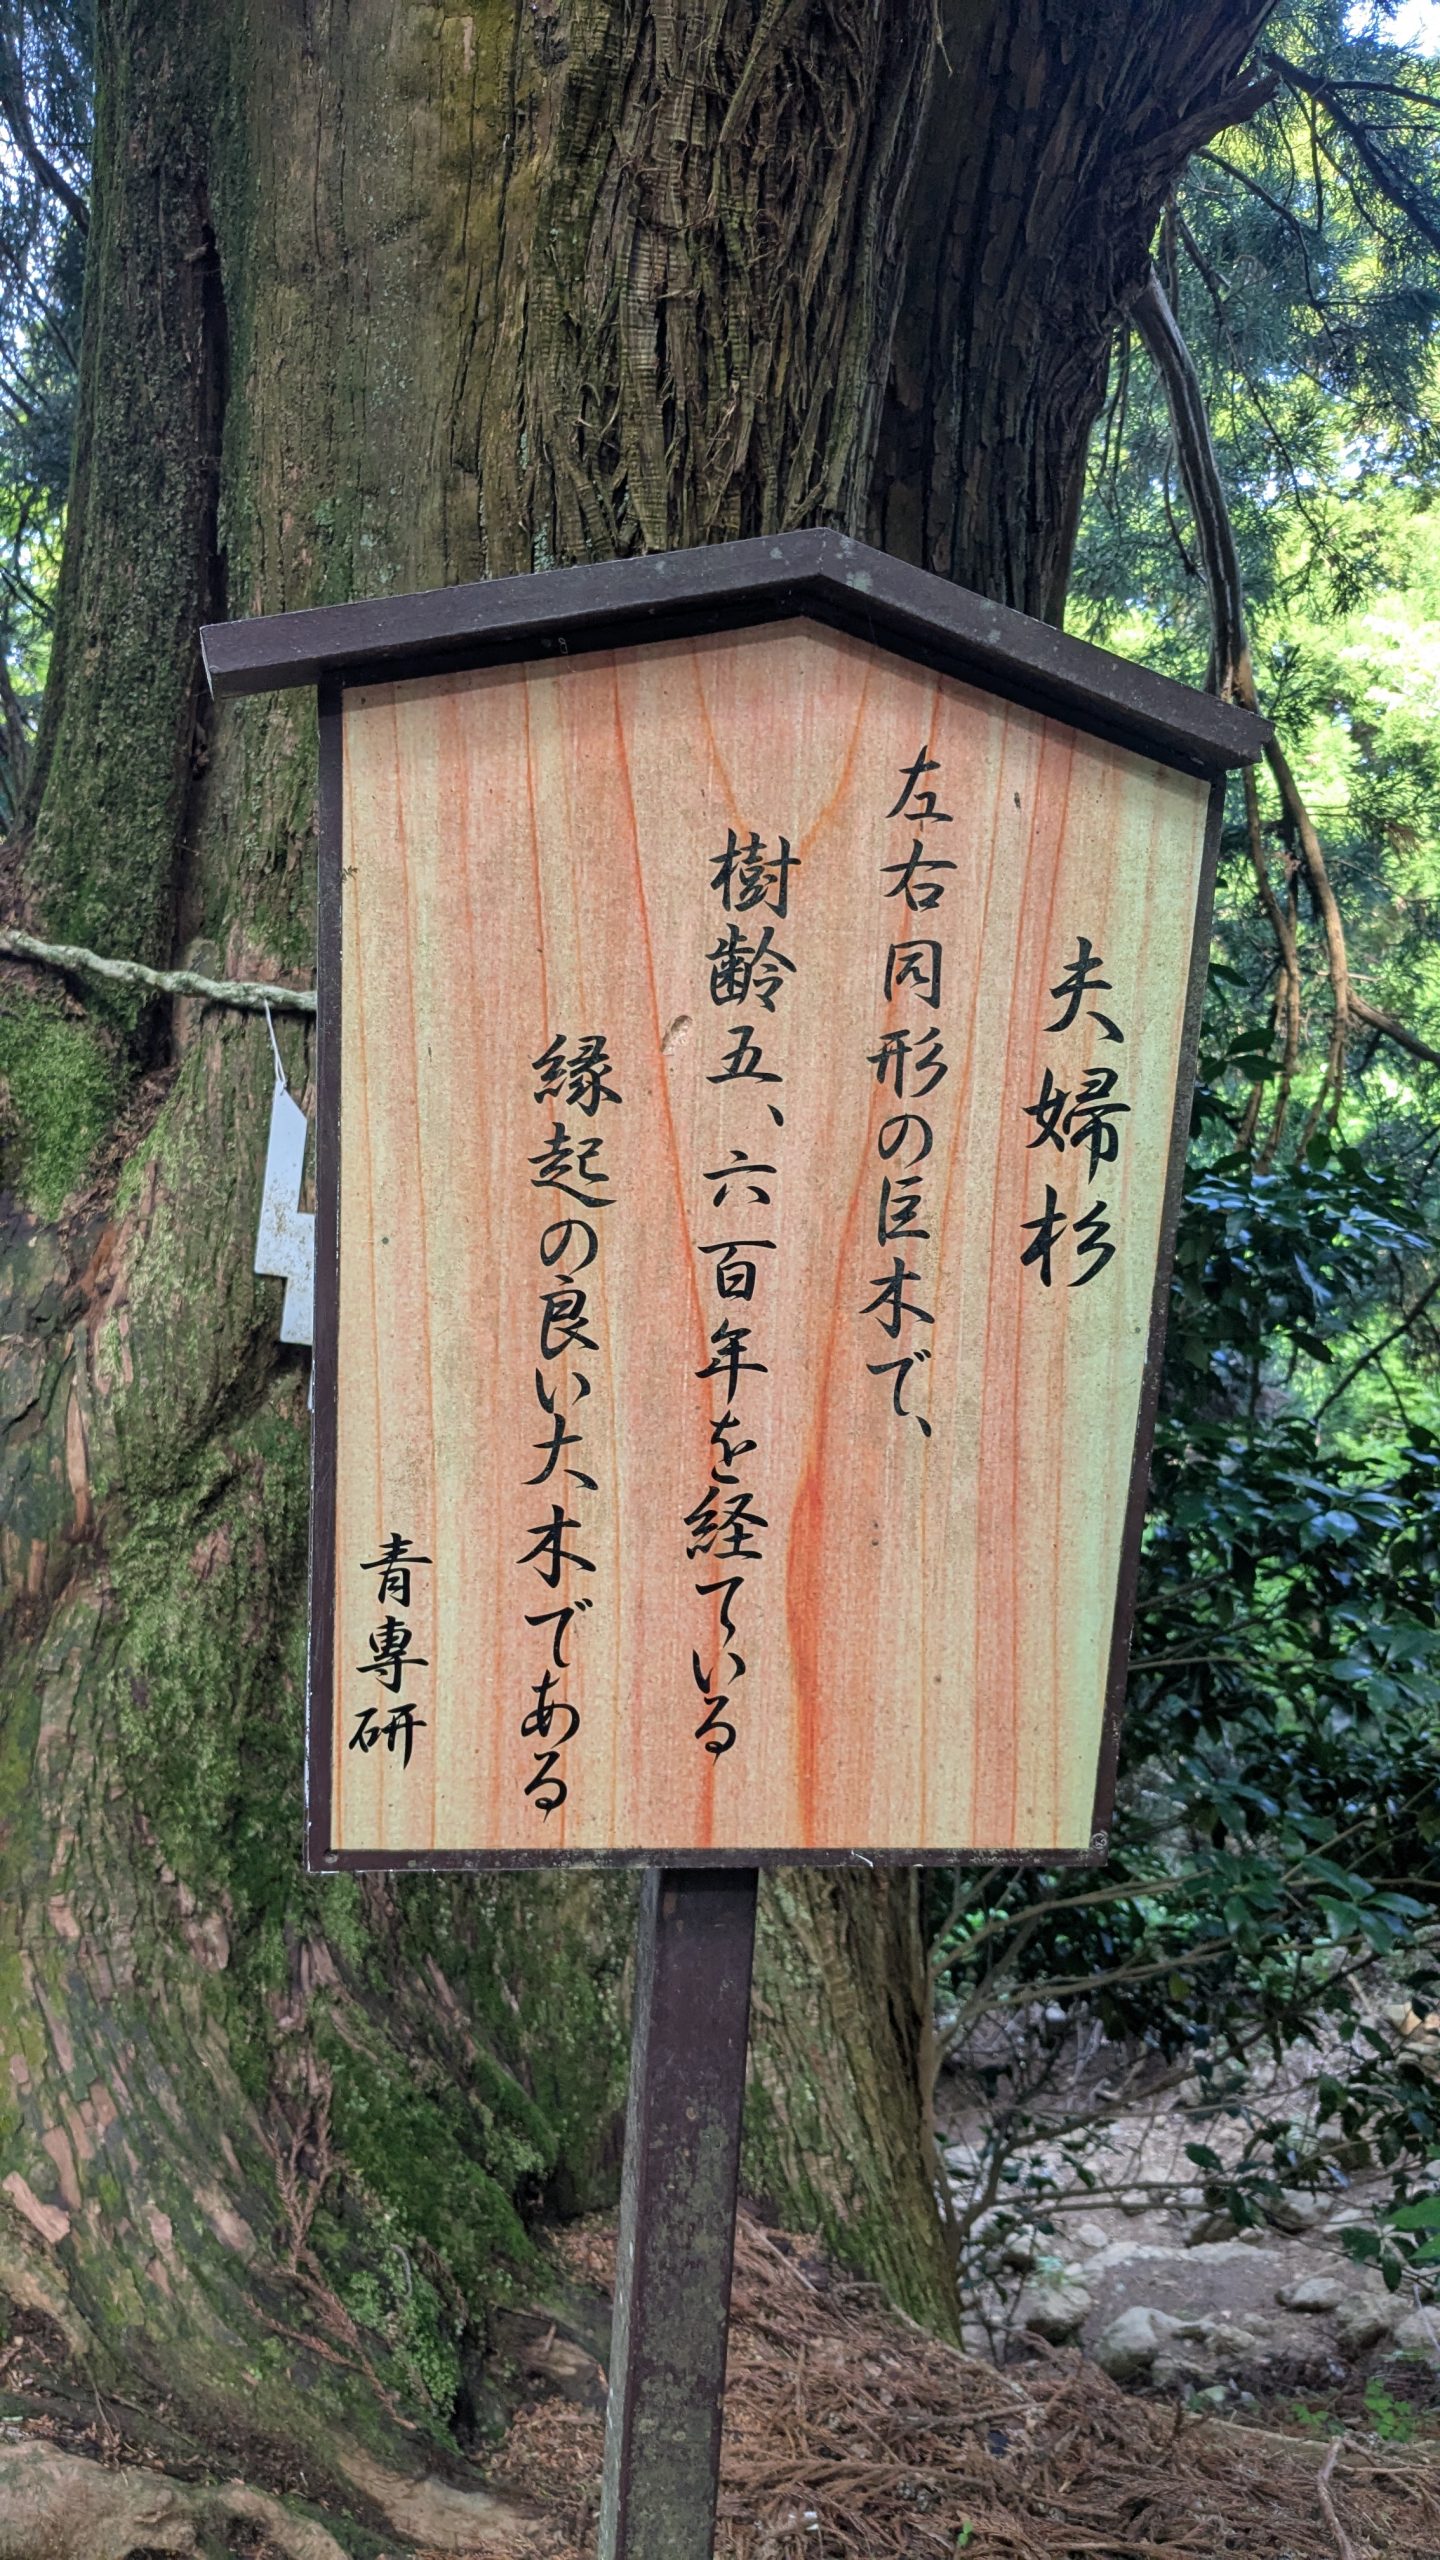 夫婦杉
左右同形の巨木で、
樹齢五、六百年を経ている
縁起の良い大木である
青専研